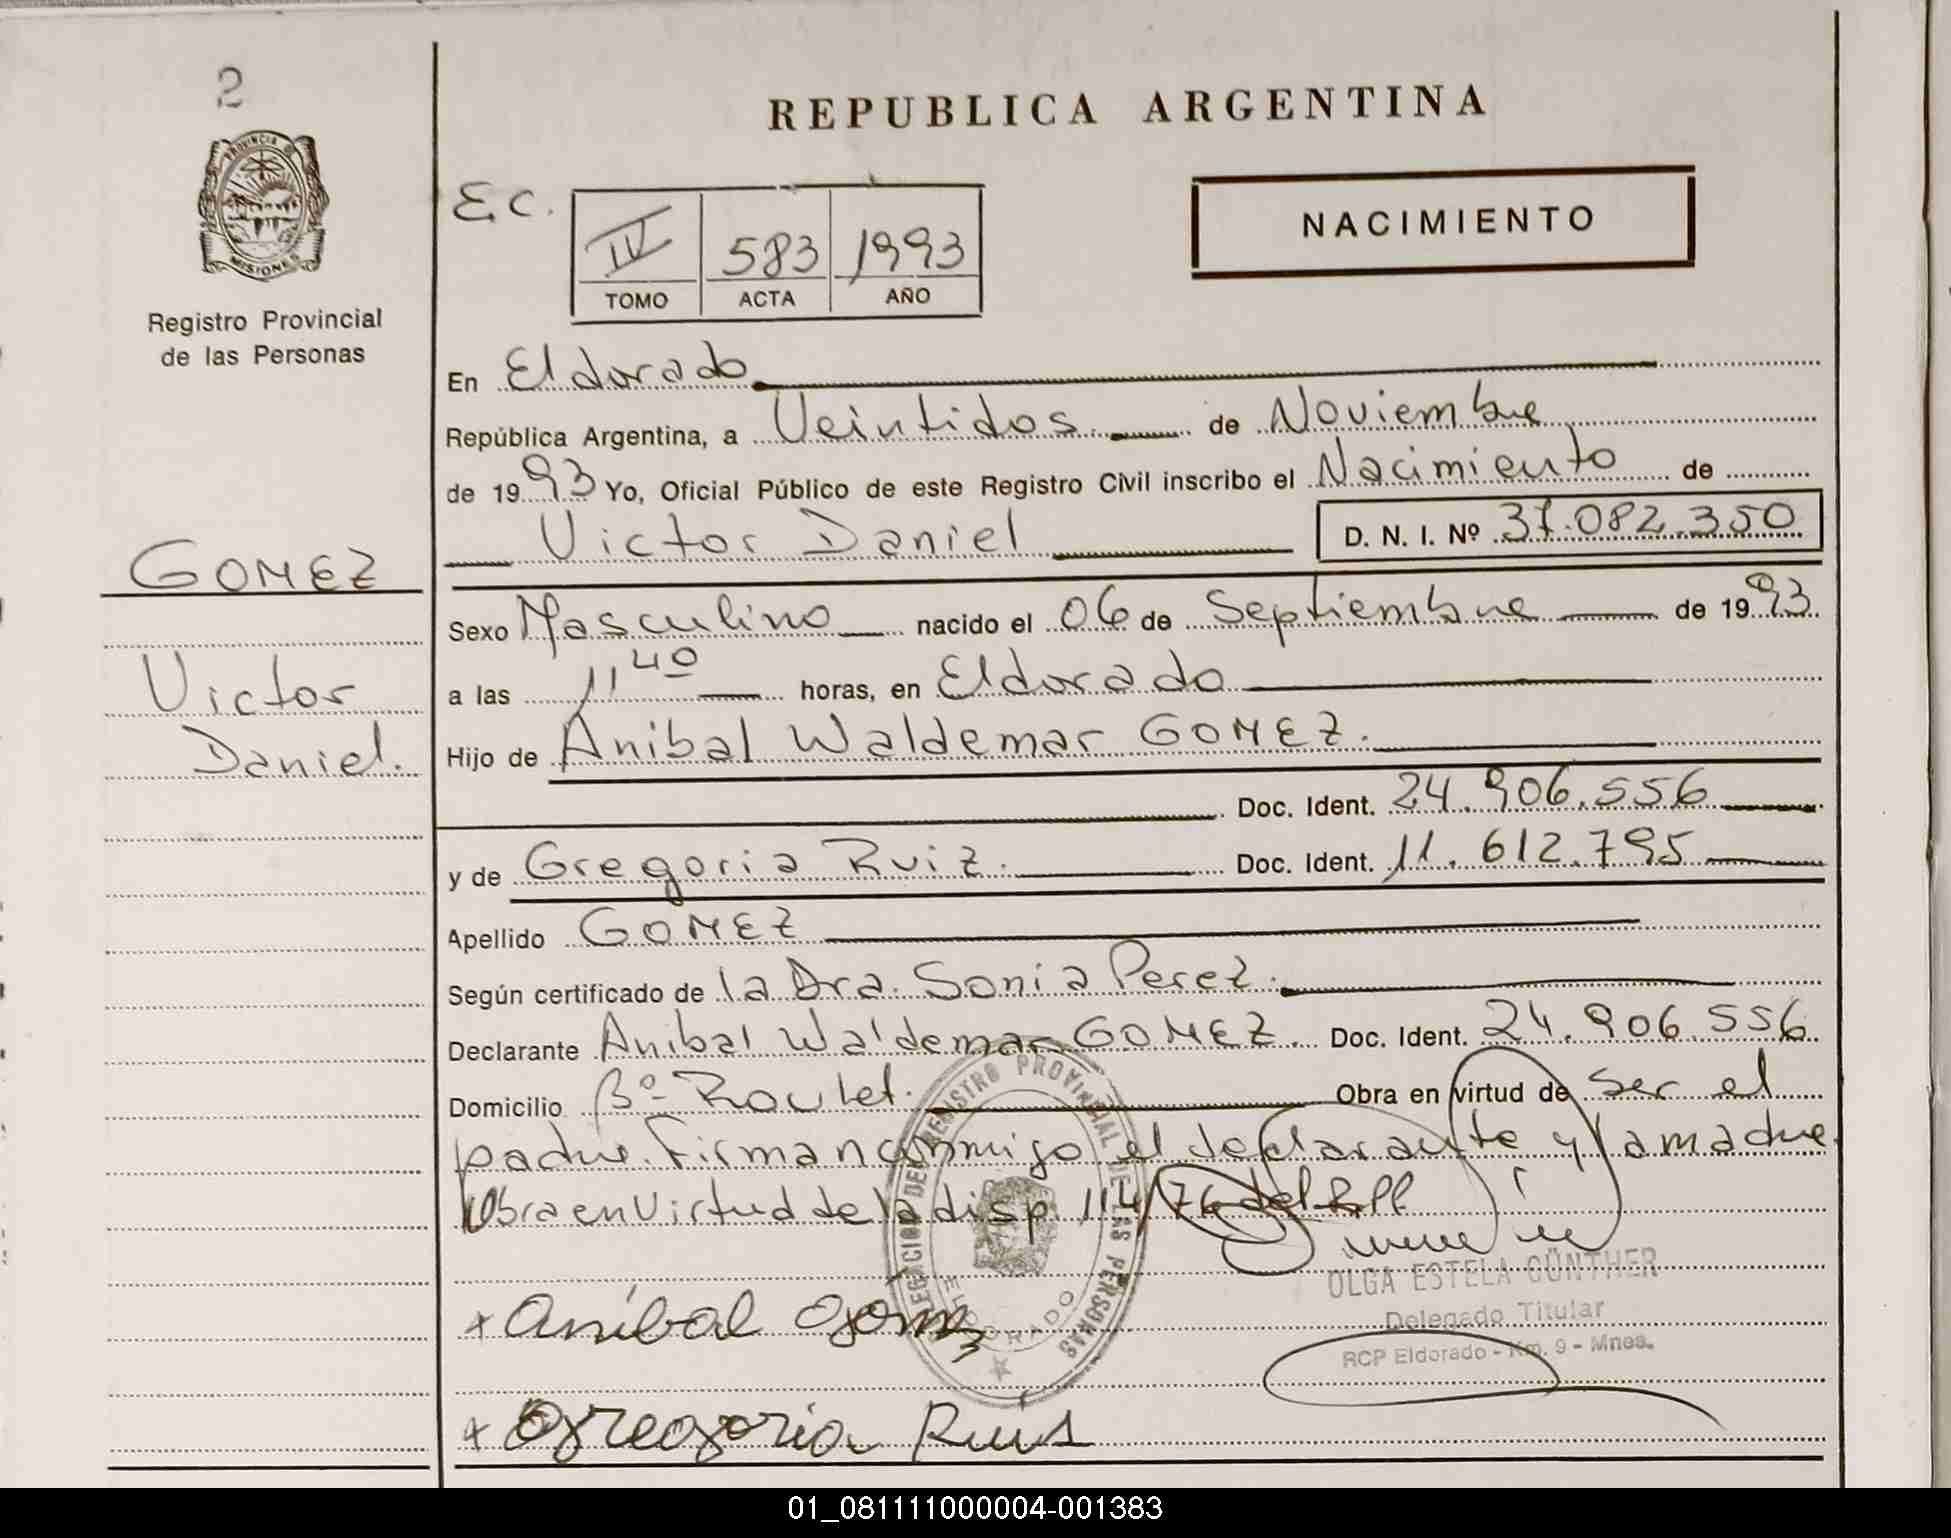 2
REPUBLICA ARGENTINA
PROVINCIA DE
MISIONES
Registro Provincial
de las Personas
E.C.
IV 583 1993
TOMO ACTA AÑO
NACIMIENTO
En Eldorado
República Argentina, a Veintidos de Noviembre
de 1993 Yo, Oficial Público de este Registro Civil inscribo el Nacimiento de
Victor Daniel D. N. I. Nº 37.082.350
GOMEZ
Victor
Daniel.
Sexo Masculino nacido el 06 de Septiembre de 1993
a las 11 40 horas, en Eldorado
Hijo de Anibal Waldemar GOMEZ.
Doc. Ident. 24.906.556
y de Gregoria Ruiz. Doc. Ident. 11.612.795
Apellido GOMEZ
Según certificado de la Dra. Sonia Perez.
Declarante Anibal Waldemar GOMEZ. Doc. Ident. 24.906.556
Domicilio Bº Roulet. Obra en virtud de ser el
padre. Firman conmigo el declarante y la madre.
Obra en Virtud de la disp. 114/76 del RPP
DELEGACION DEL REGISTRO PROVINCIAL DE LAS PERSONAS
ELDORADO
OLGA ESTELA GÜNTHER
Delegado Titular
RCP Eldorado - Km. 9 - Mnes.
x Anibal Gomez
x Gregoria Ruis
01_081111000004-001383